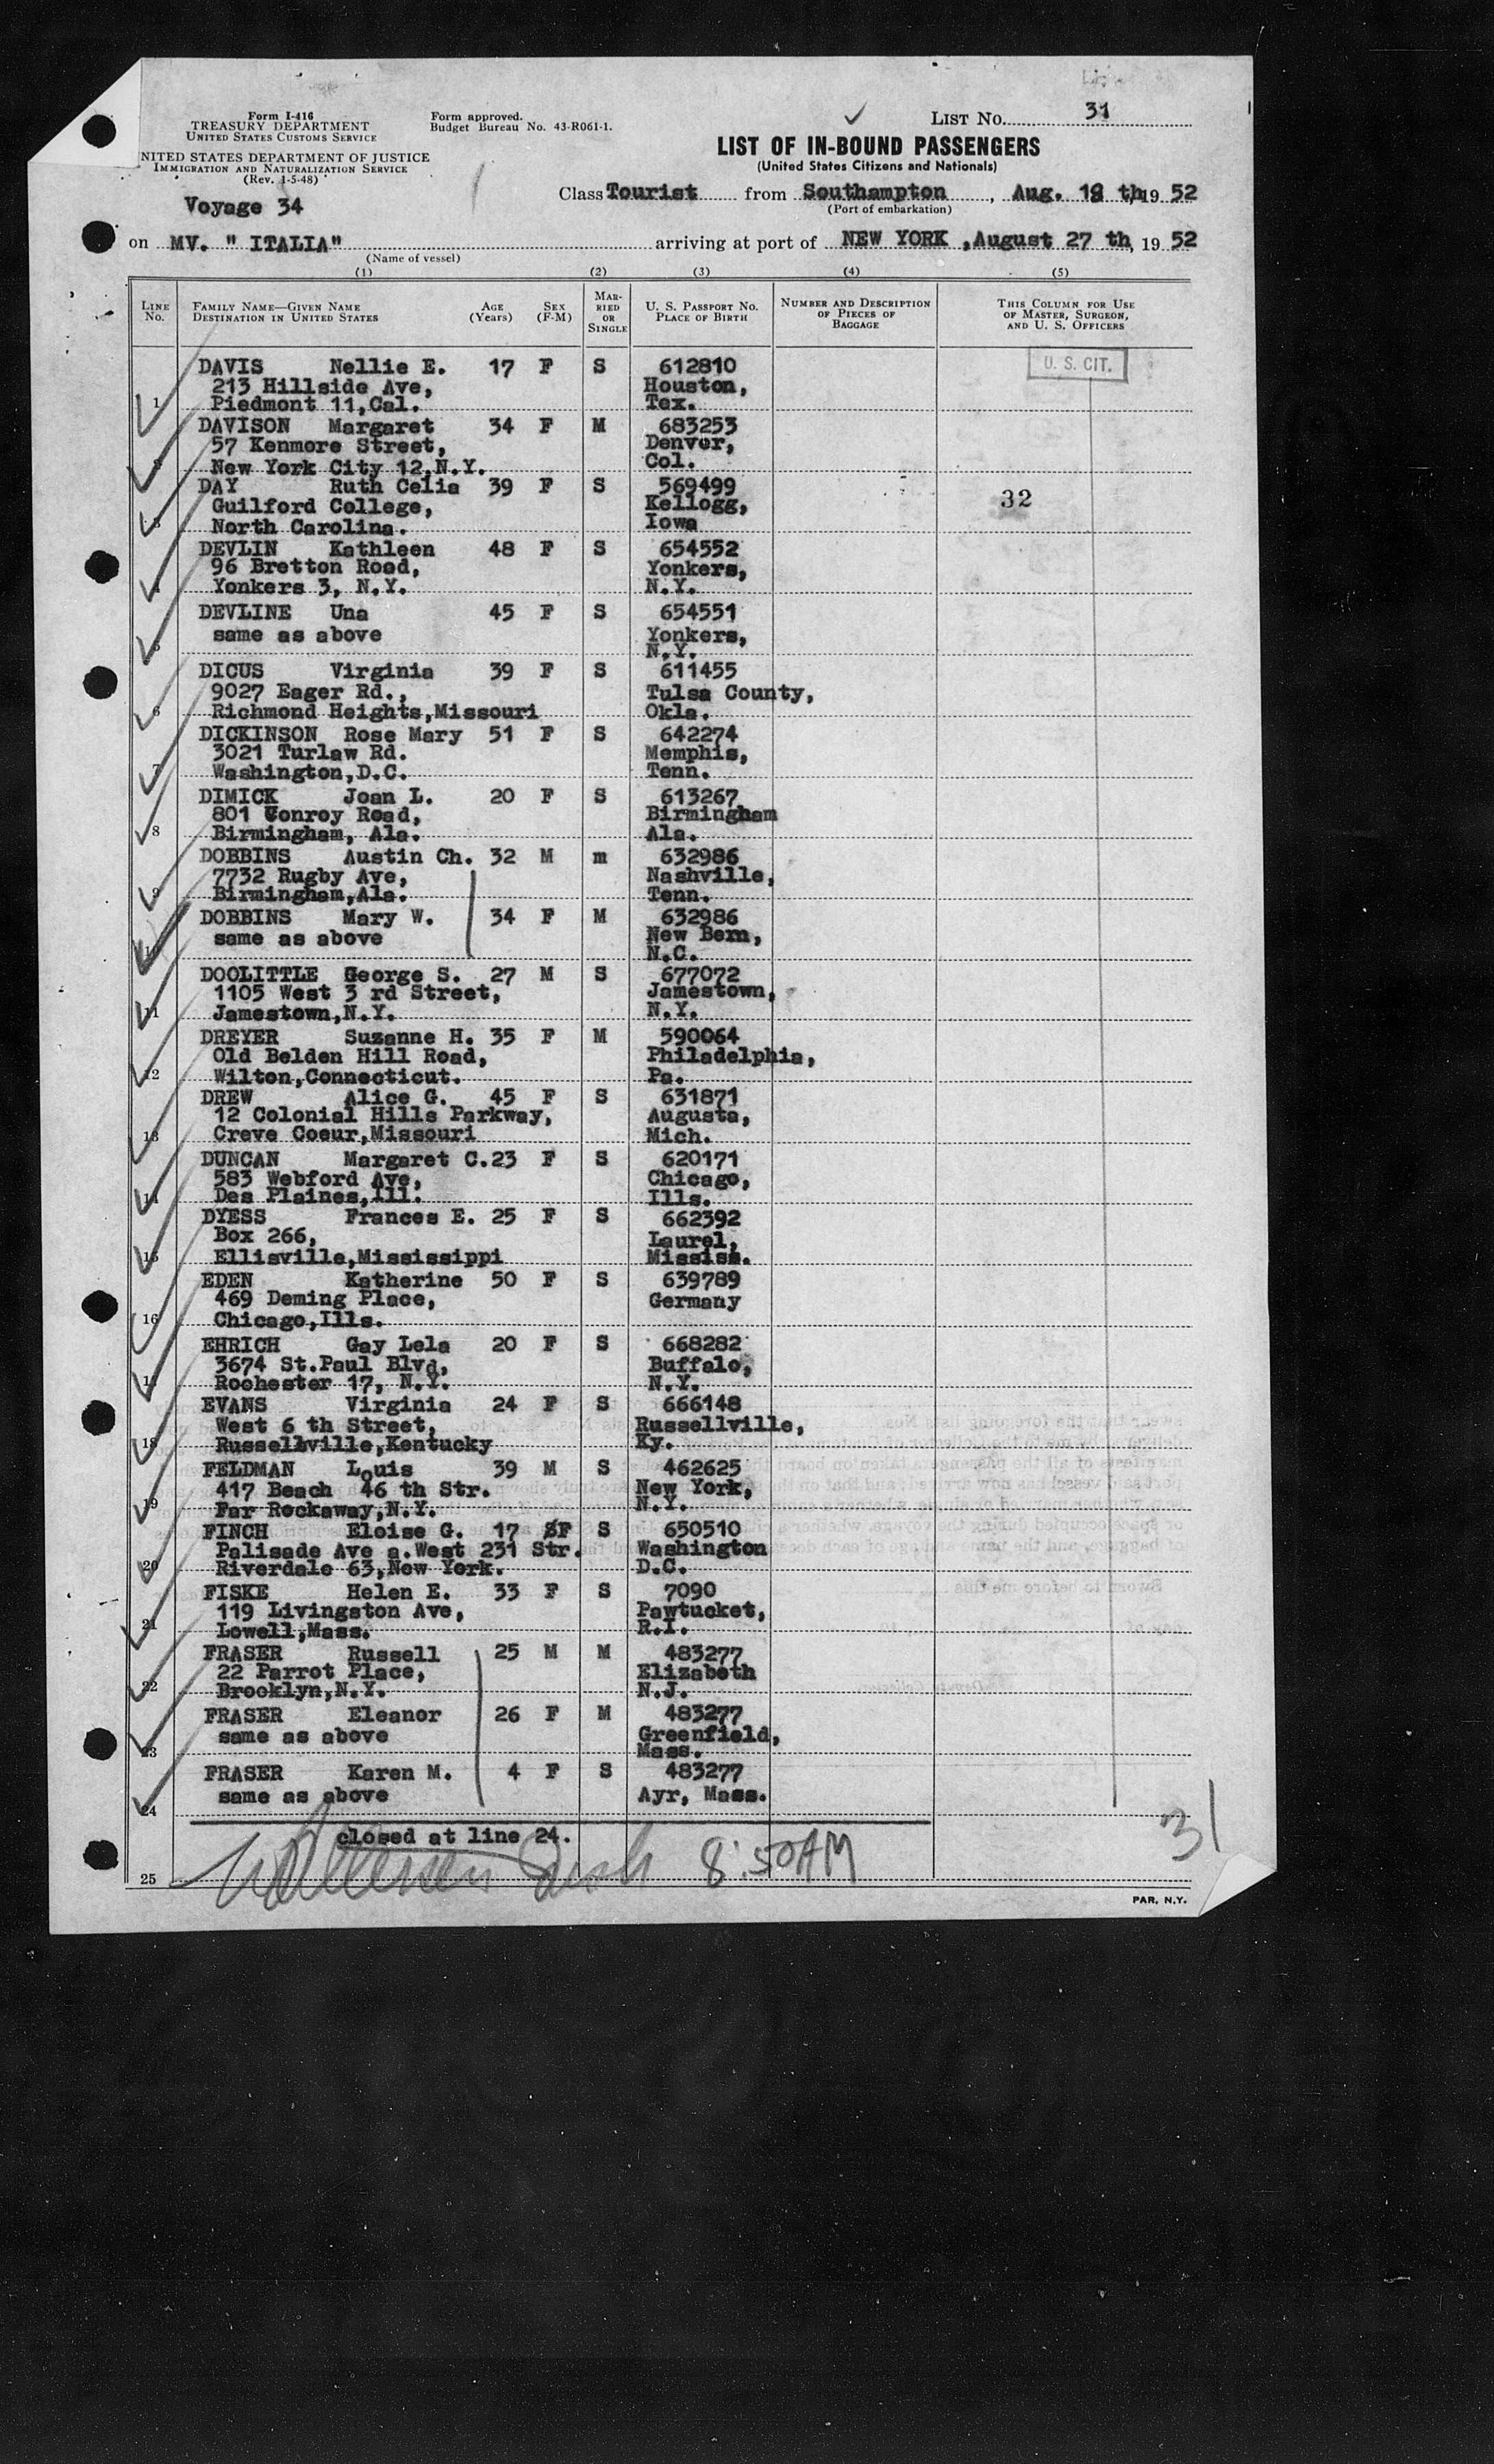 Form I-416
TREASURY DEPARTMENT
UNITED STATES CUSTOMS SERVICE
Form approved.
Budget Bureau No. 43-R061-1.
LIST No. 31
NITED STATES DEPARTMENT OF JUSTICE
IMMIGRATION AND NATURALIZATION SERVICE
(Rev. 1-5-48)
LIST OF IN-BOUND PASSENGERS
(United States Citizens and Nationals)
Voyage 34
Class Tourist from Southampton, Aug. 19 th, 19 52
(Port of embarkation)
on MV. " ITALIA" arriving at port of NEW YORK, August 27 th, 19 52
(Name of vessel)
(1) (2) (3) (4) (5)
LINE No.
FAMILY NAME—GIVEN NAME
DESTINATION IN UNITED STATES
AGE (Years)
SEX (F-M)
MARRIED OR SINGLE
U. S. PASSPORT No.
PLACE OF BIRTH
NUMBER AND DESCRIPTION OF PIECES OF BAGGAGE
THIS COLUMN FOR USE OF MASTER, SURGEON, AND U. S. OFFICERS
DAVIS Nellie E. 17 F S 612810 U. S. CIT.
213 Hillside Ave, Houston,
1 Piedmont 11,Cal. Tex.
DAVISON Margaret 34 F M 683253
57 Kenmore Street, Denver,
2 New York City 12,N.Y. Col.
DAY Ruth Celia 39 F S 569499
Guilford College, Kellogg, 32
3 North Carolina. Iowa
DEVLIN Kathleen 48 F S 654552
96 Bretton Road, Yonkers,
4 Yonkers 3, N.Y. N.Y.
DEVLINE Una 45 F S 654551
same as above Yonkers,
5 N.Y.
DICUS Virginia 39 F S 611455
9027 Eager Rd., Tulsa County,
6 Richmond Heights,Missouri Okla.
DICKINSON Rose Mary 51 F S 642274
3021 Turlaw Rd. Memphis,
7 Washington,D.C. Tenn.
DIMICK Joan L. 20 F S 613267
801 Conroy Road, Birmingham
8 Birmingham, Ala. Ala.
DOBBINS Austin Ch. 32 M m 632986
7732 Rugby Ave, Nashville,
9 Birmingham,Ala. Tenn.
DOBBINS Mary W. 34 F M 632986
same as above New Bern,
10 N.C.
DOOLITTLE George S. 27 M S 677072
1105 West 3 rd Street, Jamestown,
11 Jamestown,N.Y. N.Y.
DREYER Suzanne H. 35 F M 590064
Old Belden Hill Road, Philadelphia,
12 Wilton,Connecticut. Pa.
DREW Alice G. 45 F S 631871
12 Colonial Hills Parkway, Augusta,
13 Creve Coeur,Missouri Mich.
DUNCAN Margaret C. 23 F S 620171
583 Webford Ave, Chicago,
14 Des Plaines,Ill. Ills.
DYESS Frances E. 25 F S 662392
Box 266, Laurel,
15 Ellisville,Mississippi Missis.
EDEN Katherine 50 F S 639789
469 Deming Place, Germany
16 Chicago,Ills.
EHRICH Gay Lela 20 F S 668282
3674 St.Paul Blvd, Buffalo,
17 Rochester 17, N.Y. N.Y.
EVANS Virginia 24 F S 666148
West 6 th Street, Russellville,
18 Russellville,Kentucky Ky.
FELDMAN Louis 39 M S 462625
417 Beach 46 th Str. New York,
19 Far Rockaway,N.Y. N.Y.
FINCH Eloise G. 17 F S 650510
Palisade Ave a.West 231 Str. Washington
20 Riverdale 63,New York. D.C.
FISKE Helen E. 33 F S 7090
119 Livingston Ave, Pawtucket,
21 Lowell,Mass. R.I.
FRASER Russell 25 M M 483277
22 Parrot Place, Elizabeth
22 Brooklyn,N.Y. N.J.
FRASER Eleanor 26 F M 483277
same as above Greenfield,
23 Mass.
FRASER Karen M. 4 F S 483277
same as above Ayr, Mass.
24
closed at line 24.
8:50AM 31
25
PAR. N.Y.